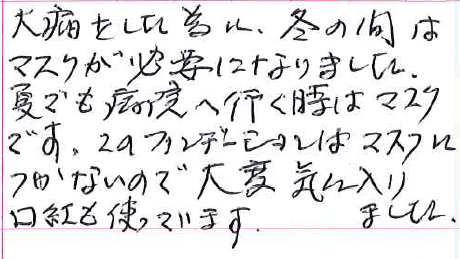 大病をした為に、冬の間は
マスクが必要になりました。
夏でも病院へ行く時はマスク
です。このファンデーションはマスクに
つかないので大変気に入り
口紅も使っています。 ました。